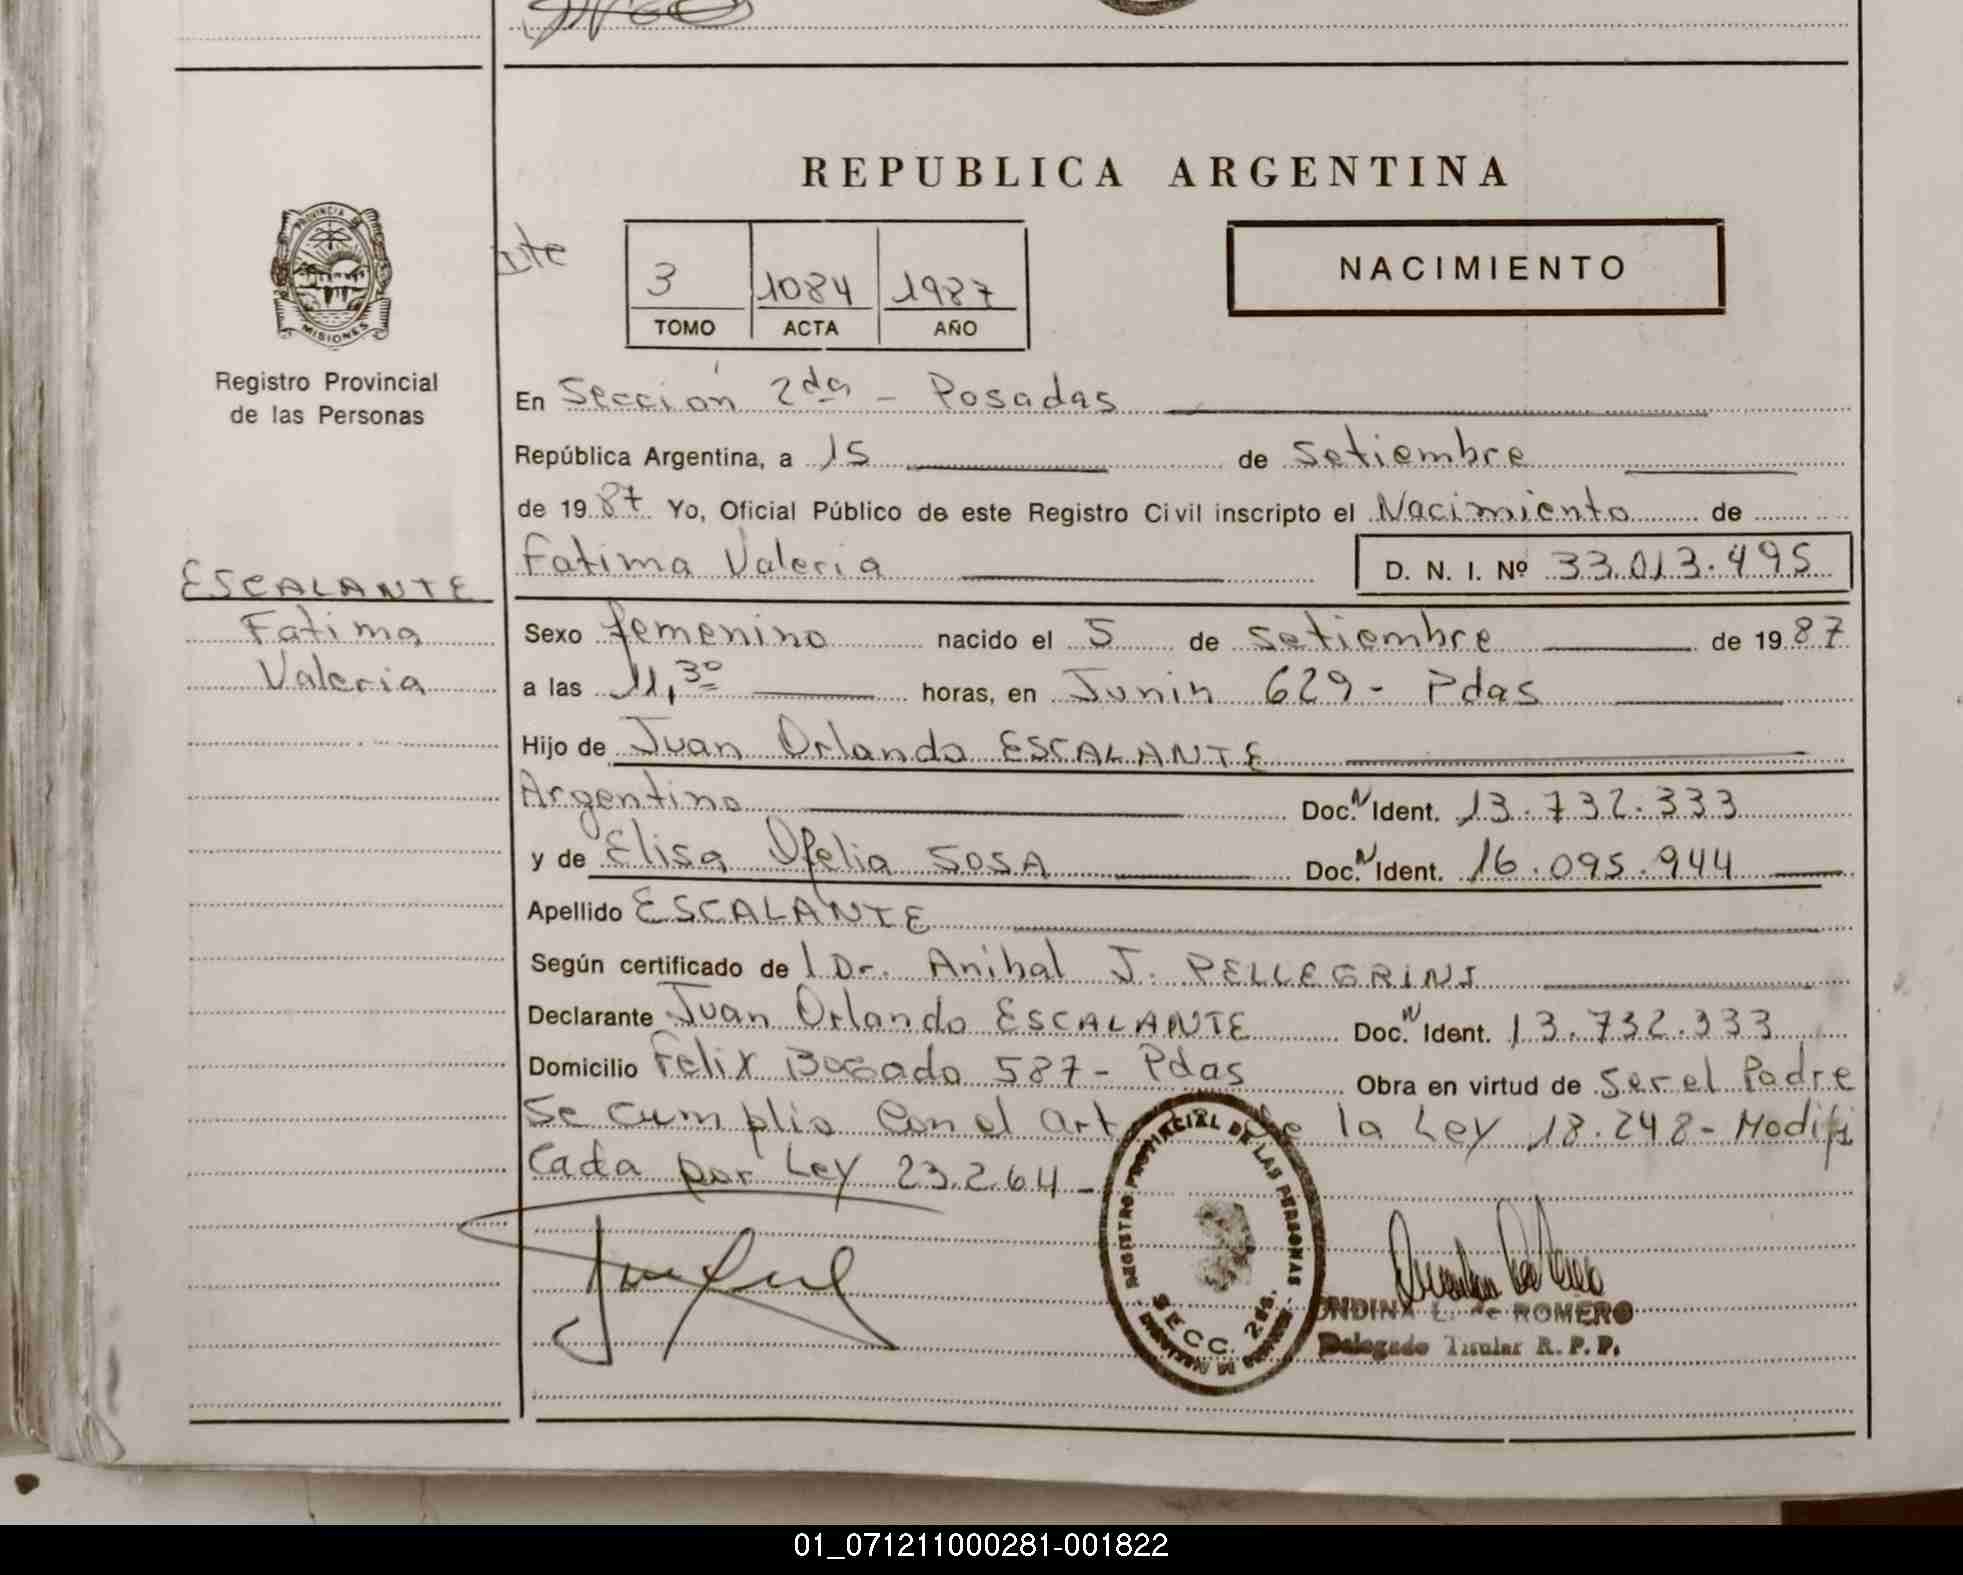 REPUBLICA ARGENTINA
PROVINCIA DE
MISIONES
Registro Provincial
de las Personas
Ite
3 1084 1987
TOMO ACTA AÑO
NACIMIENTO
En Sección 2da - Posadas
República Argentina, a 15 de Setiembre
de 1987 Yo, Oficial Público de este Registro Civil inscripto el Nacimiento de
Fatima Valeria D. N. I. Nº 33.013.495
ESCALANTE
Fatima
Valeria
Sexo femenino nacido el 5 de Setiembre de 1987
a las 11,30 horas, en Junin 629 - Pdas
Hijo de Juan Orlando ESCALANTE
Argentino Doc. N Ident. 13.732.333
y de Elisa Ofelia SOSA Doc. N Ident. 16.095.944
Apellido ESCALANTE
Según certificado de l Dr. Anibal J. PELLEGRINI
Declarante Juan Orlando ESCALANTE Doc. N Ident. 13.732.333
Domicilio Felix Bogado 587 - Pdas Obra en virtud de Ser el Padre
Se cumplio Con el art de la Ley 18.248 - Modifi
cada por Ley 23.264 -
REGISTRO PROVINCIAL DE LAS PERSONAS
SECC. 2da.
MISIONES
ONDINA L. de ROMERO
Delegado Titular R. P. P.
01_071211000281-001822